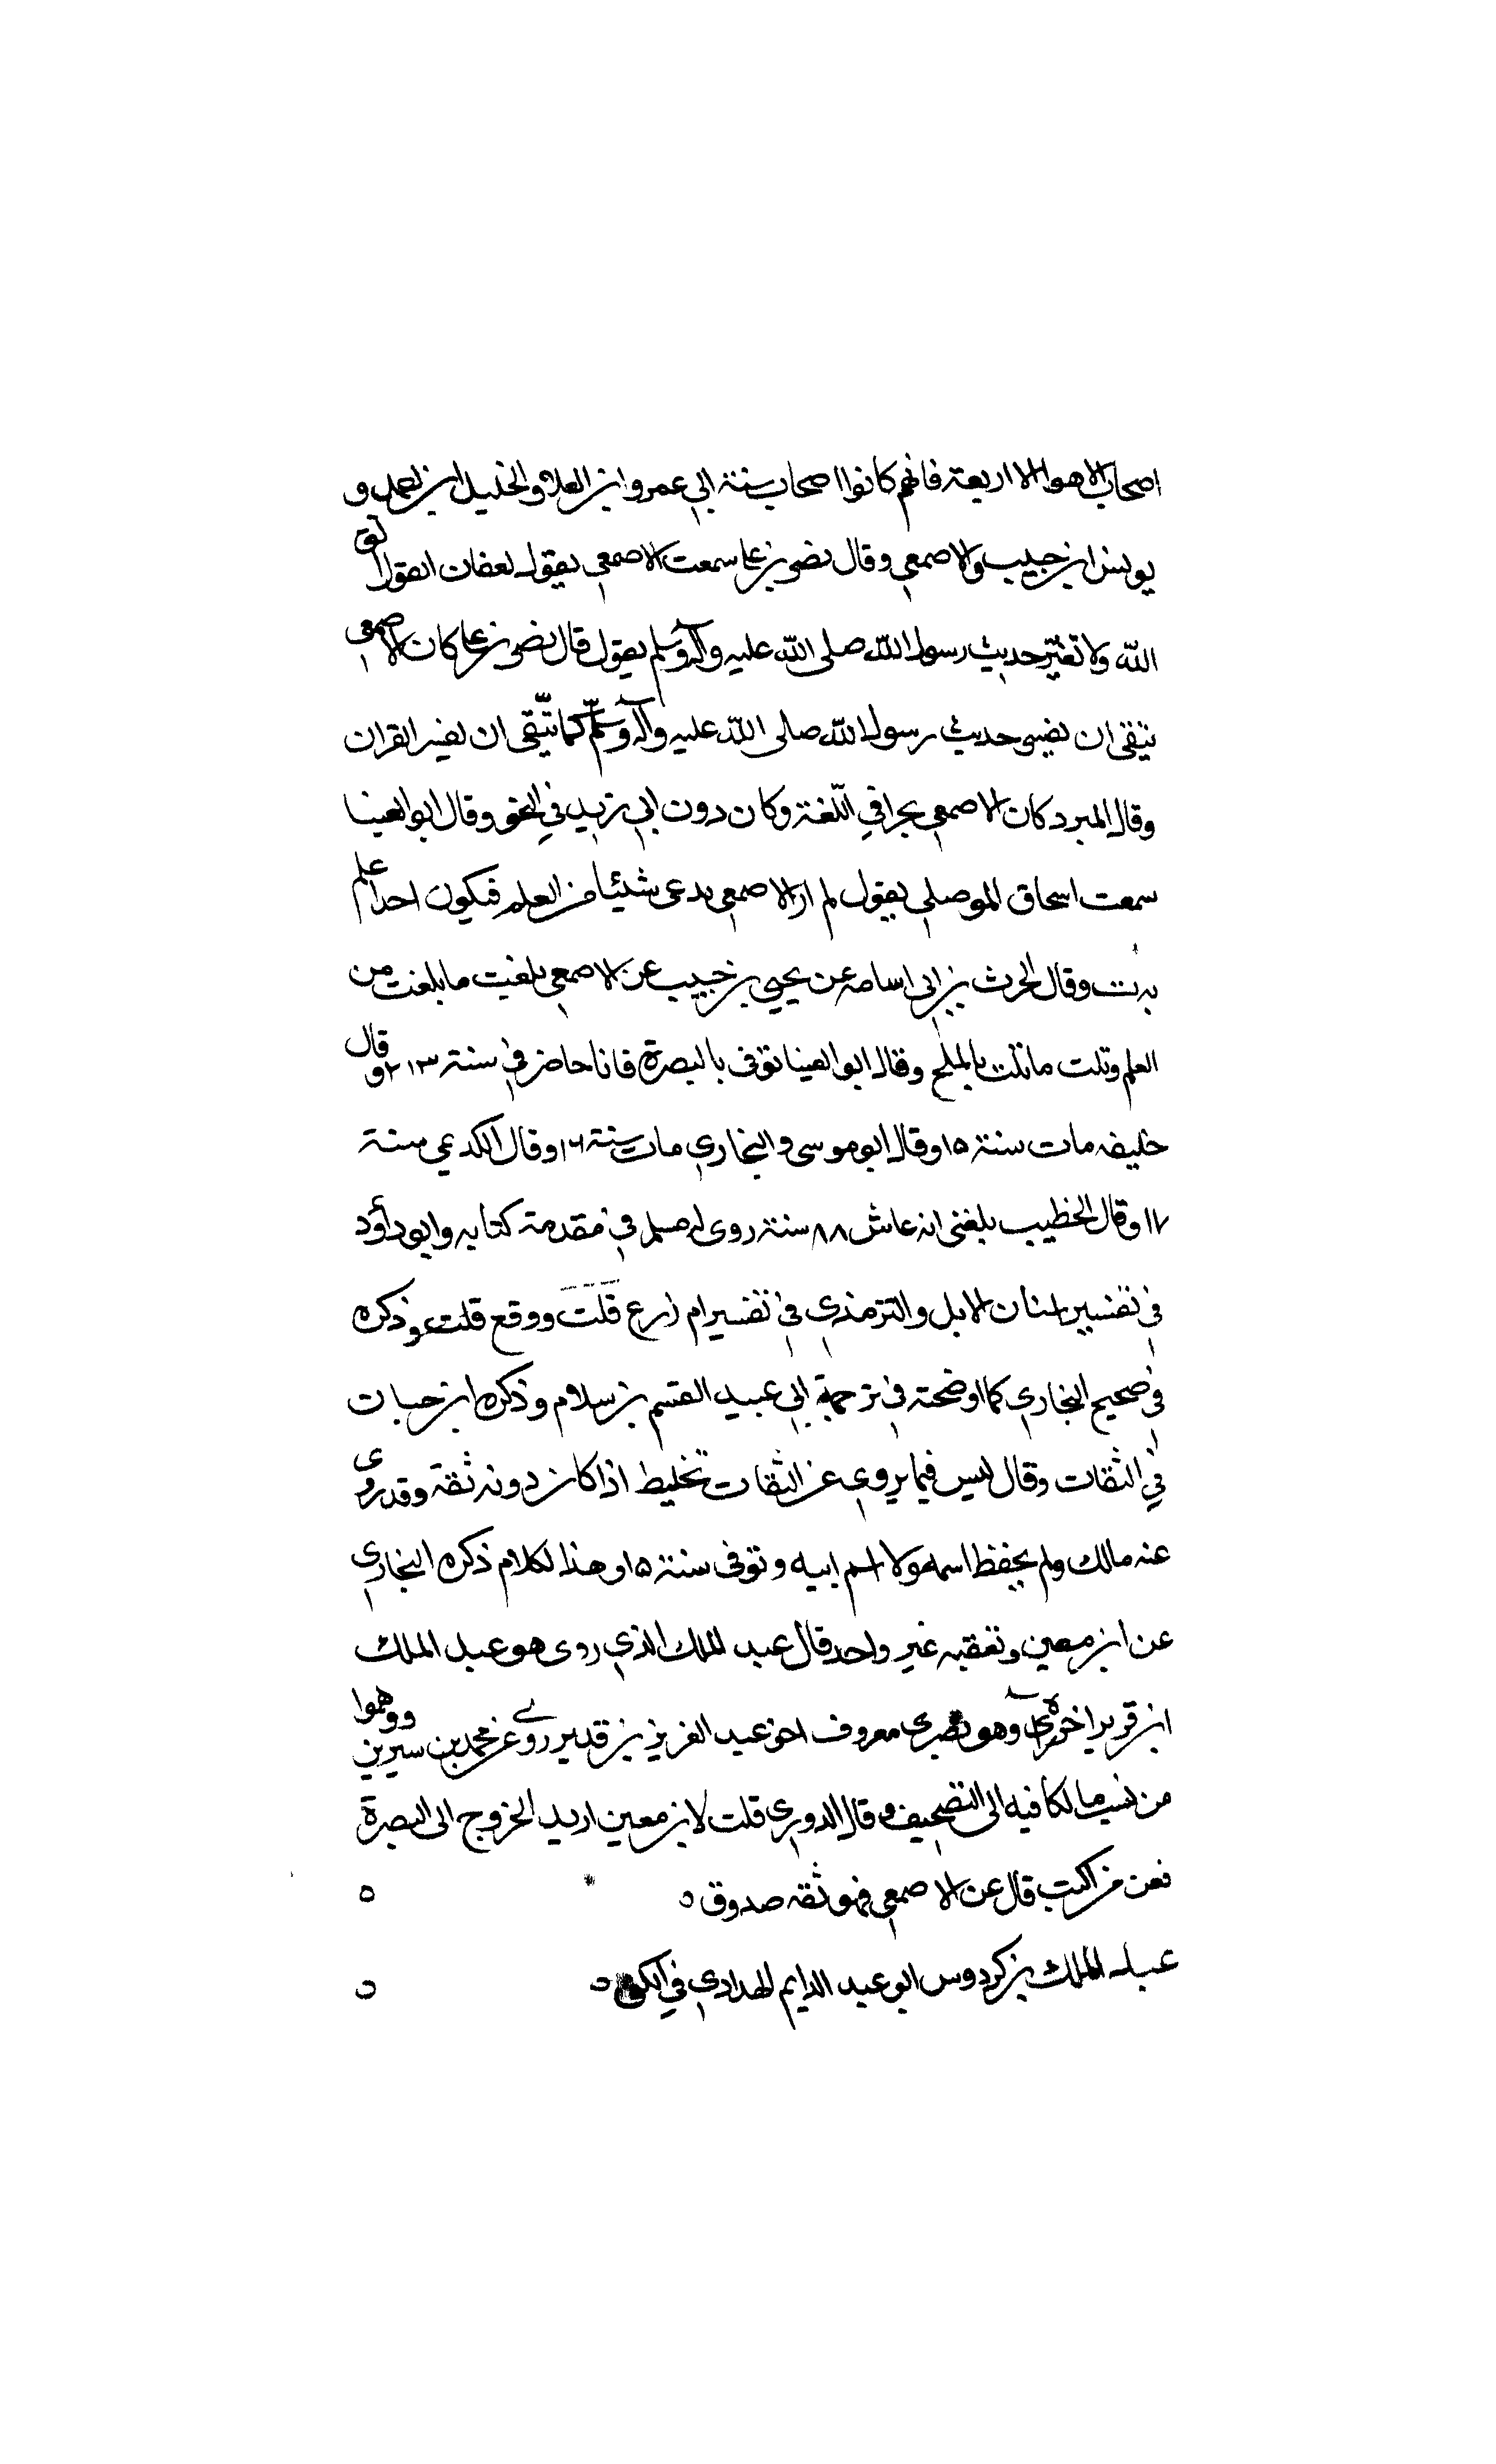 اصحاب الاهوا الا اربعة فانهم كانوا اصحاب سنة ابي عمرو ابن العلا والخليل ابن احمد و
يونس ابن حبيب والاصمعي وقال نصر بن على سمعت الاصمعي يقول لعفان اتق
الله ولا تغير حديث رسول الله صلى الله عليه وآله وسلم بقول قال نصر بن على كان الاصمعي
يتقي ان يفسر حديث رسول الله صلى الله عليه وآله وسلم كما يتقى ان يفسر القران
وقال المبرد كان الاصمعي بحرا في اللغة وكان دون ابي زيد في النحو وقال ابو العينا
سمعت اسحاق الموصلي يقول لم ار الاصمعي يدعى شيئا من العلم فيكون احدا علم
به وقال الحرث بن ابي اسامه عن يحيى بن حبيب عن الاصمعي بلغت ما بلغت من
العلم ونلت ما نلت بالملح وقال ابو العينا توفى بالبصرة فانا حاضر في سنة ٢١٣ وقال
خليفه مات سنة ١٥ وقال ابو موسى والبخاري مات سنة ١٦ وقال الكديمي سنة
١٧ وقال الخطيب بلغنى انه عاش ٨٨ سنة روى له مسلم في مقدمة كتابه وابو داؤد
في تفسير اسنان الابل والترمذي في تفسير ام زرع قلت ووقع ذكره
في صحيح البخاري كما اوضحته في ترجمة ابي عبيد القسم بن سلام وذكره ابن حبان
في الثقات وقال ليس فيما يروي عن الثقات تخليط اذا كان دونه ثقة وقد روى
عنه مالك ولم يحفظ اسمه ولا اسم ابيه وتوفى سنة ١٥ وهذا الكلام ذكره البخاري
عن ابن معين وتعقبه غير واحد قال عبد الملك الذي روى هو عبد الملك
ابن قرير اخره را وهو بصرى معروف اخو عبد العزيز بن قدير روى عن محمد بن سيرين ووهموا
من نسب مالكا فيه الى التصحيف وقال الدوري قلت لابن معين اريد الخروج الى البصرة
فعن من اكتب قال عن الاصمعي فهو ثقه صدوق ٥
عبد الملك بن كردوس ابو عبد الدايم الهدادي في الكنى ٥